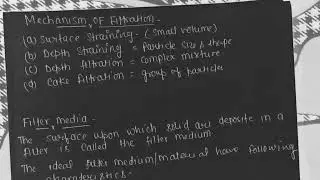 Mechanism OF Filtration -
(a) Surface Straining - (Small volume)
(b) Depth Straining = Particle size & shape
(c) Depth filtration = complex mixture
(d) Cake filtration = group of particles
Filter media -
The surface upon which solid are deposite in a
filter is called the filter medium.
The ideal filter medium/material have following
characteristics -